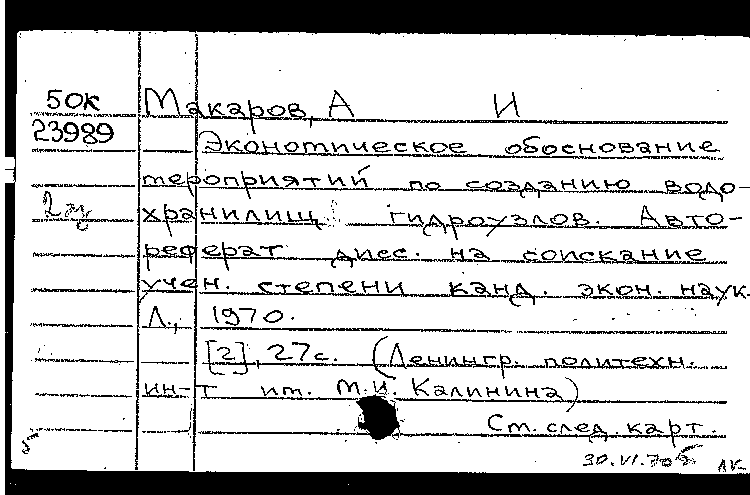 50к Макаров, А И
23989 Экономическое обоснование
мероприятий по созданию водо-
2 хранилищ гидроузлов. Авто-
реферат дисс. на соискание
учен. степени канд. экон. наук.
Л., 1970.
[2], 27с. (Ленингр. политехн.
ин-т им. М.И. Калинина)
См. след. карт.
30.VI.70